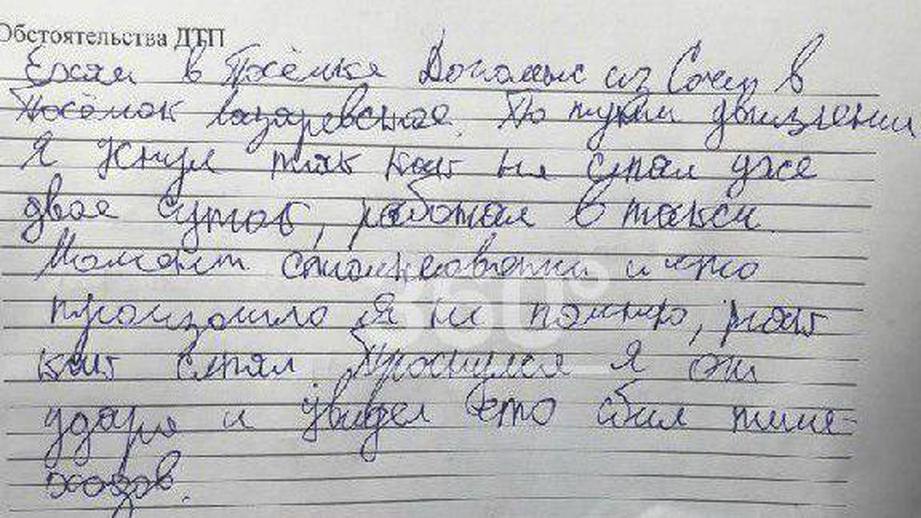 Обстоятельства ДТП
Ехал в Посёлке Дагомыс из Сочи в
Посёлок Лазаревское. По пути движения
Я уснул так как не спал уже
двое суток, работал в такси.
Момент столкновения и что
произошло Я не помню, так
как спал. Проснулся Я от
удара и увидел что сбил пише-
ходов.
360°